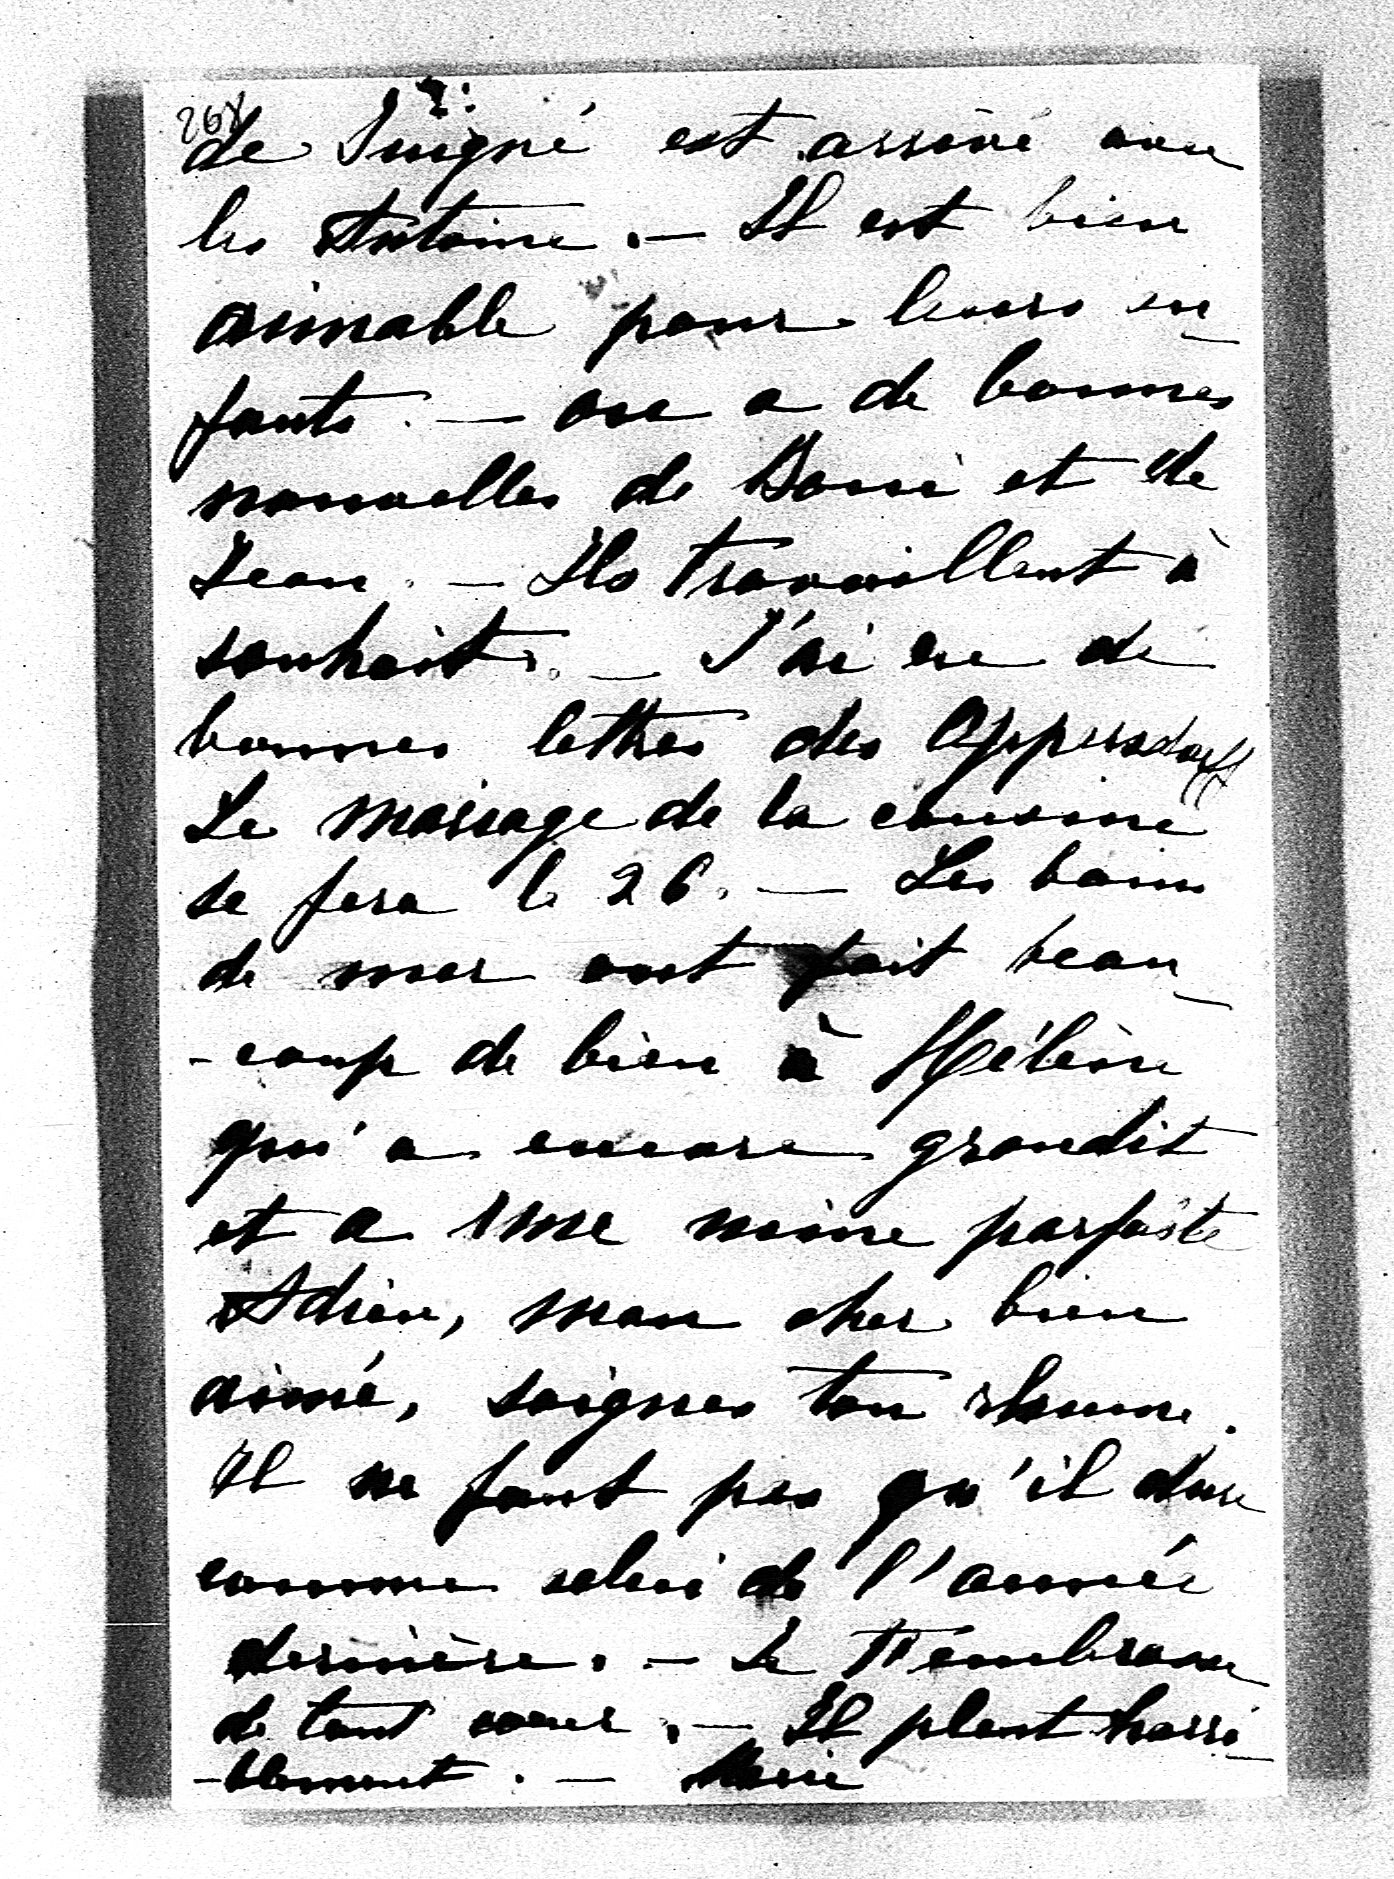 268
de Juigné est arrivé avec
les Antoine. — Il est bien
aimable pour leurs en-
fants. — on a de bonnes
nouvelles de Boni et de
Jean. — Ils travaillent à
souhait. — J'ai eu de
bonnes lettres des Oppersdorff
Le mariage de la cousine
se fera le 26. — Les bains
de mer ont fait beau-
-coup de bien à Hélène
qui a encore grandit
et a une mine parfaite
Adieu, mon cher bien
aimé, soignes ton rhume.
Il ne faut pas qu'il dure
comme celui de l'année
dernière. — Je t'embrasse
de tout cœur. — Il pleut horri-
-blement. — Marie